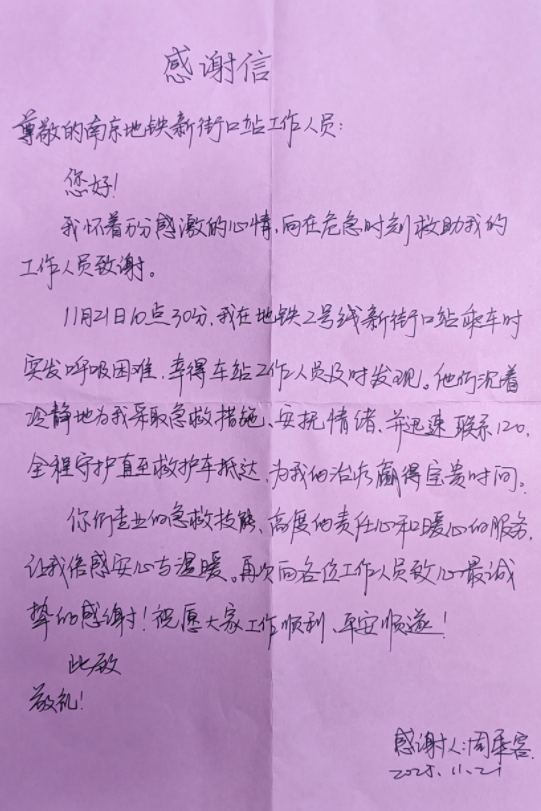 感谢信
尊敬的南京地铁新街口站工作人员:
您好!
我怀着万分感激的心情,向在危急时刻救助我的
工作人员致谢。
11月21日10点30分,我在地铁2号线新街口站乘车时
突发呼吸困难,幸得车站工作人员及时发现。他们沉着
冷静地为我采取急救措施、安抚情绪,并迅速联系120,
全程守护直至救护车抵达,为我的治疗赢得宝贵时间。
你们专业的急救技能、高度的责任心和暖心的服务,
让我倍感安心与温暖。再次向各位工作人员致以最诚
挚的感谢!祝愿大家工作顺利、平安顺遂!
此致
敬礼!
感谢人:周乘客
2025.11.21